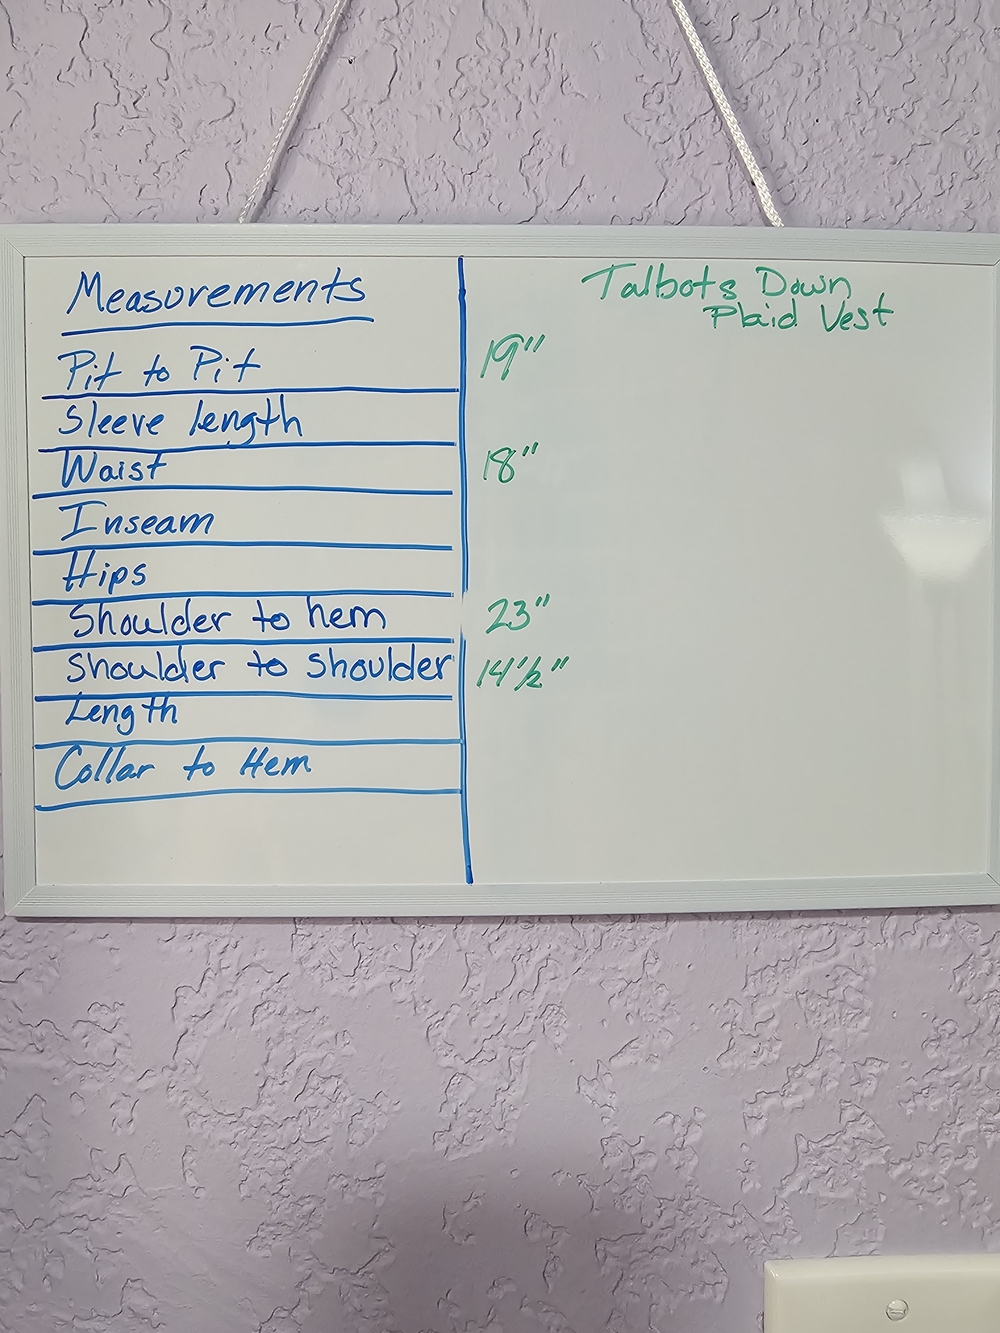 Measurements
Talbots Down
Plaid Vest
Pit to Pit 19"
Sleeve length
Waist 18"
Inseam
Hips
Shoulder to hem 23"
Shoulder to shoulder 14 1/2"
Length
Collar to Hem